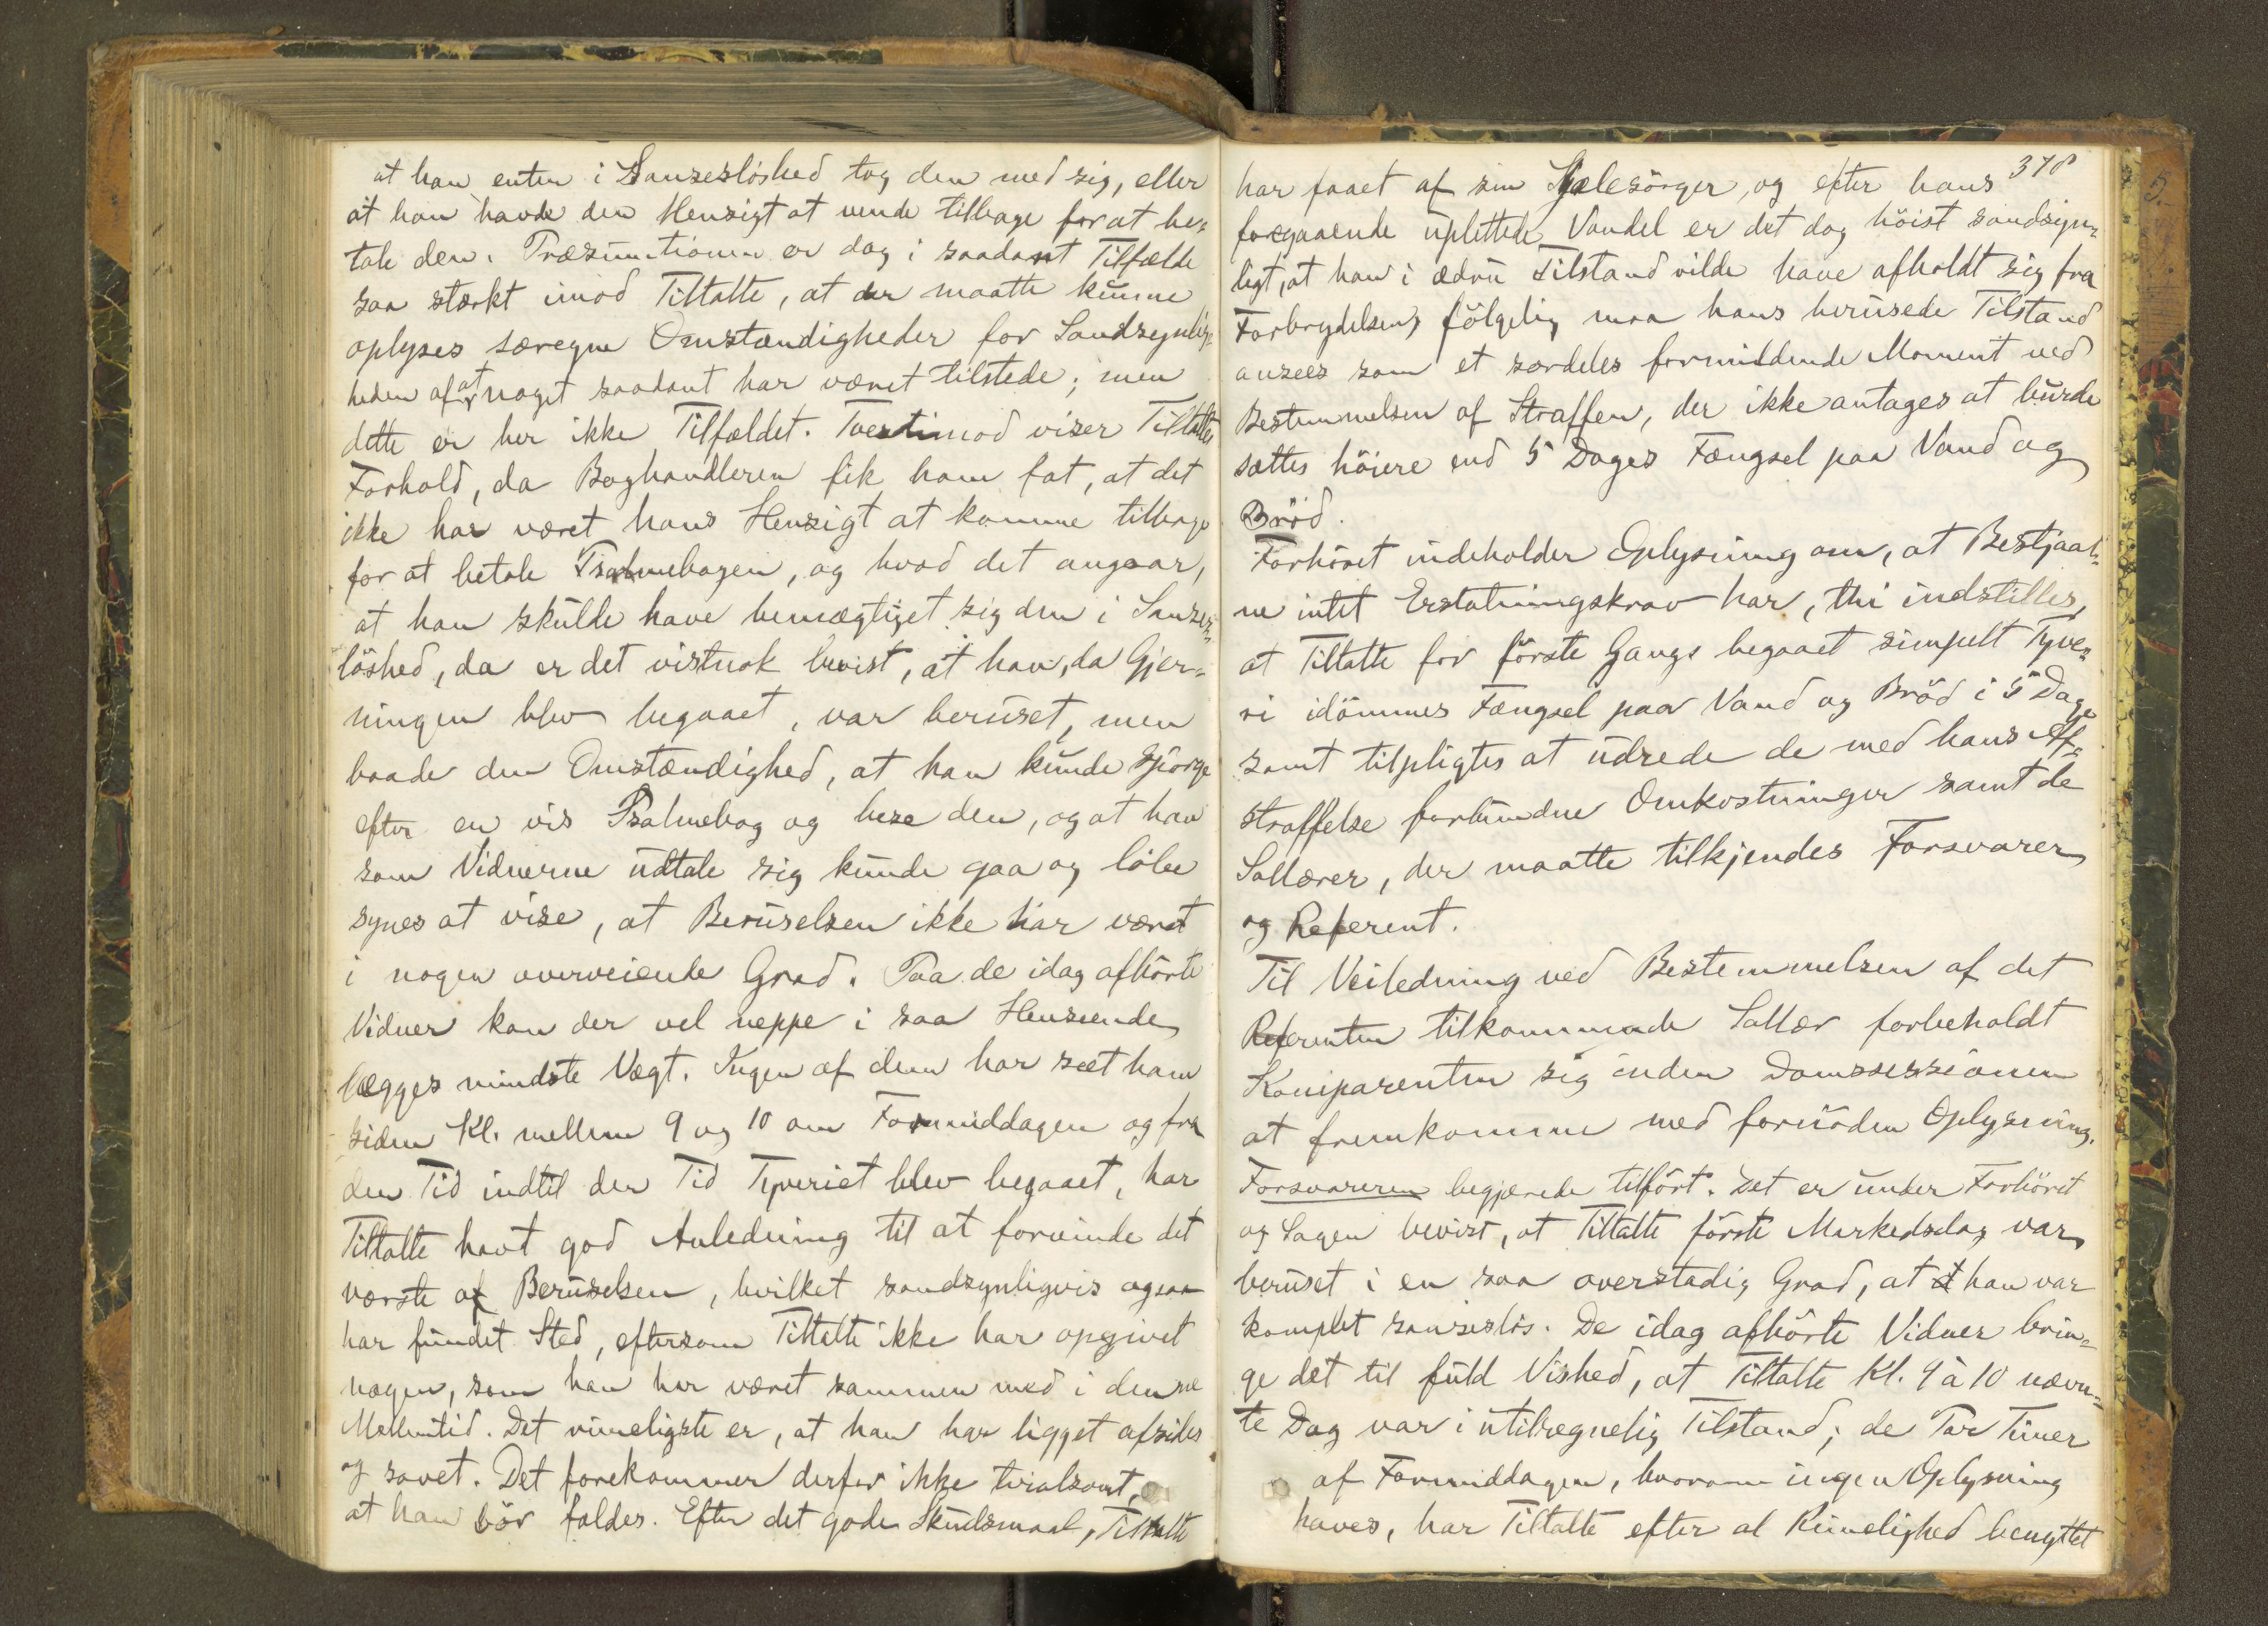 at han enten i Sansesløshed tog den med sig, eller
at han havde den Hensigt at vende tilbage for at be-
tale den. Præsumtionen er dog i saadant Tilfælde
saa stærkt imod Tiltalte, at der maatte kunne
oplyses særegne Omstændigheder for Sandsynlig-
heden af at noget saadant har været tilstede; men
dette er her ikke Tilfældet. Tvertimod viser Tiltaltes
Forhold, da Boghandleren fik ham fat, at det
ikke har været hans Hensigt at komme tilbage
for at betale Psalmebogen, og hvad det angaar,
at han skulde have bemægtiget sig den i Sanses-
løshed, da er det vistnok bevist, at han, da Gjer-
ningen blev begaaet, var beruset, men
baade den Omstændighed, at han kunde spørge
efter en vis Psalmebog og bese den, og at han
som Vidnerne udtale sig kunde gaa og løbe
synes at vise, at Beruselsen ikke har været
i nogen overveiende Grad. Paa de idag afhørte
Vidner kan der vel neppe i saa Henseende
lægges mindste Vægt. Ingen af dem har seet ham
siden Kl. mellem 9 og 10 om Formiddagen og fra
den Tid indtil den Tid Tyveriet blev begaaet, har
Tiltalte havt god Anledning til at forvinde det
værste af Beruselsen, hvilket sandsynligvis ogsaa
har fundet Sted, eftersom Tiltalte ikke har opgivet
nogen, som han har været sammen med i denne
Mellemtid. Det rimeligste er, at han har ligget afsides
og sovet. Det forekommer derfor ikke tvivlsomt,
at han bør fældes. Efter det gode Skudsmaal, Tiltalte
378
har faaet af sin Sjælesørger, og efter hans
foregaaende uplettede Vandel er det dog høist sandsyn-
ligt, at han i ædru Tilstand vilde have afholdt sig fra
Forbrydelsen, følgelig maa hans berusede Tilstand
ansees som et særdeles formildende Moment ved
Bestemmelsen af Straffen, der ikke antages at burde
sættes høiere end 5 Dages Fængsel paa Vand og
Brød.
Forhøret indeholder Oplysning om, at Bestjaal-
ne intet Erstatningskrav har, thi indstilles,
at Tiltalte for første Gangs begaaet simpelt Tyve-
ri idømmes Fængsel paa Vand og Brød i 5 Dage
samt tilpligtes at udrede de med hans Af-
straffelse forbundne Omkostninger samt de
Sallærer, der maatte tilkjendes Forsvarer
og Referent.
Til Veiledning ved Bestemmelsen af det
Referenten tilkommende Sallær forbeholdt
Komparenten sig inden Domssessionen
at fremkomme med fornøden Oplysning.
Forsvareren begjærede tilført. Det er under Forhøret
og Sagen bevist, at Tiltalte første Markedsdag var
beruset i en saa overstadig Grad, at han var
komplet sanseløs. De idag afhørte Vidner brin-
ge det til fuld Vished, at Tiltalte Kl. 9 à 10 nævn-
te Dag var i utilregnelig Tilstand; de Par Timer
af Formiddagen, hvorom ingen Oplysning
haves, har Tiltalte efter al Rimelighed benyttet